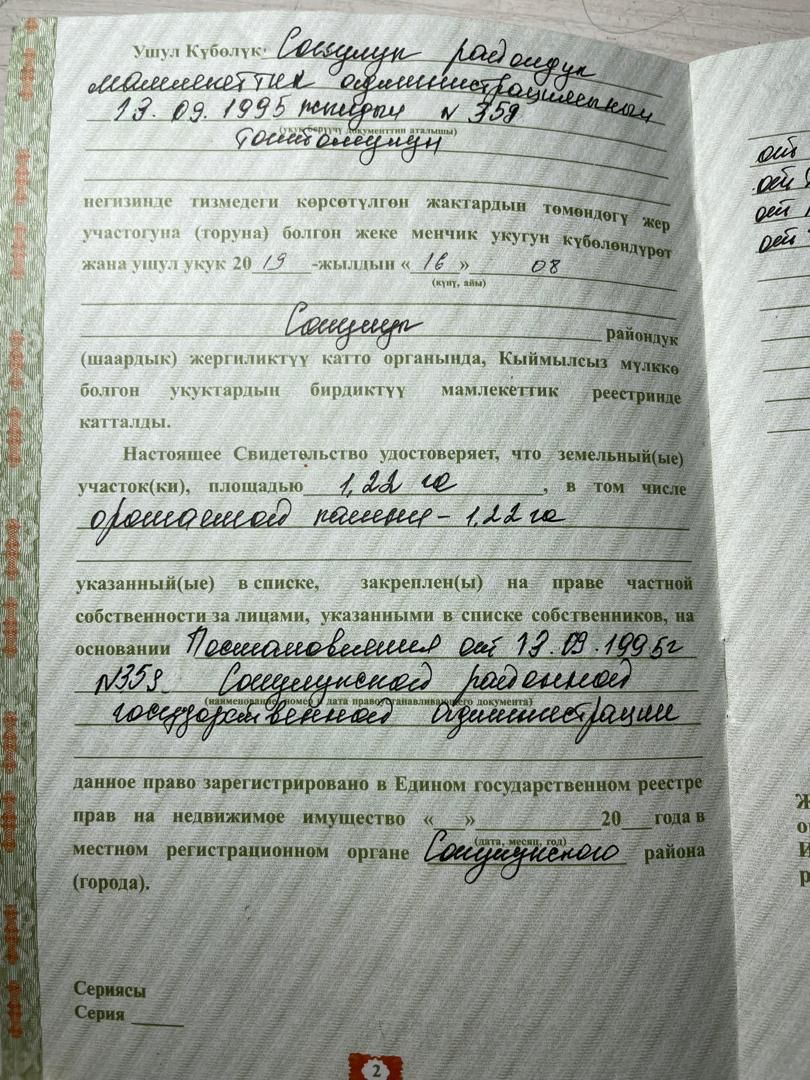 Ушул Күбөлүк Сокулук райондук
мамлекеттик администрациясынын
13. 09. 1995 жылдын № 359
(укук берүүчү документтин аталышы)
токтомунун
негизинде тизмедеги көрсөтүлгөн жактардын төмөндөгү жер
участогуна (торуна) болгон жеке менчик укугун күбөлөндүрөт
жана ушул укук 20 19 -жылдын « 16 » 08
(күнү, айы)
Сокулук райондук
(шаардык) жергиликтүү катто органында, Кыймылсыз мүлккө
болгон укуктардын бирдиктүү мамлекеттик реестринде
катталды.
Настоящее Свидетельство удостоверяет, что земельный(ые)
участок(ки), площадью 1,22 га , в том числе
орошаемой пашни – 1,22 га
указанный(ые) в списке, закреплен(ы) на праве частной
собственности за лицами, указанными в списке собственников, на
основании Постановления от 13.09.1995г
№359. Сокулукской районной
(наименование, номер и дата правоустанавливающего документа)
государственной администрации
данное право зарегистрировано в Едином государственном реестре
прав на недвижимое имущество « » 20 года в
(дата, месяц, год)
местном регистрационном органе Сокулукского района
(города).
Сериясы
Серия
2
от
от
от
от